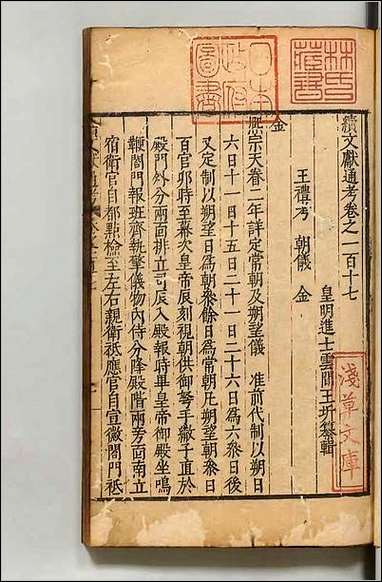 林氏藏書
日本政府圖書
續文獻通考卷之一百十七
皇明進士雲間王圻纂輯
淺草文庫
王禮考 朝儀 金
金
熙宗天眷二年詳定常朝及朔望儀 准前代制以朔日
六日十一日十五日二十一日二十六日為六參日後
又定制以朔望日為朝參餘日為常朝凡朔望朝參日
百官卯時至幕次皇帝辰刻視朝供御弩手撒子直於
殿門外分兩面排立司辰入殿報時畢皇帝御殿坐鳴
鞭閤門報班齊執擎儀物内侍分降殿階兩旁面南立
宿衛官自都點檢至左右親衛祗應官自宣徽閤門祗